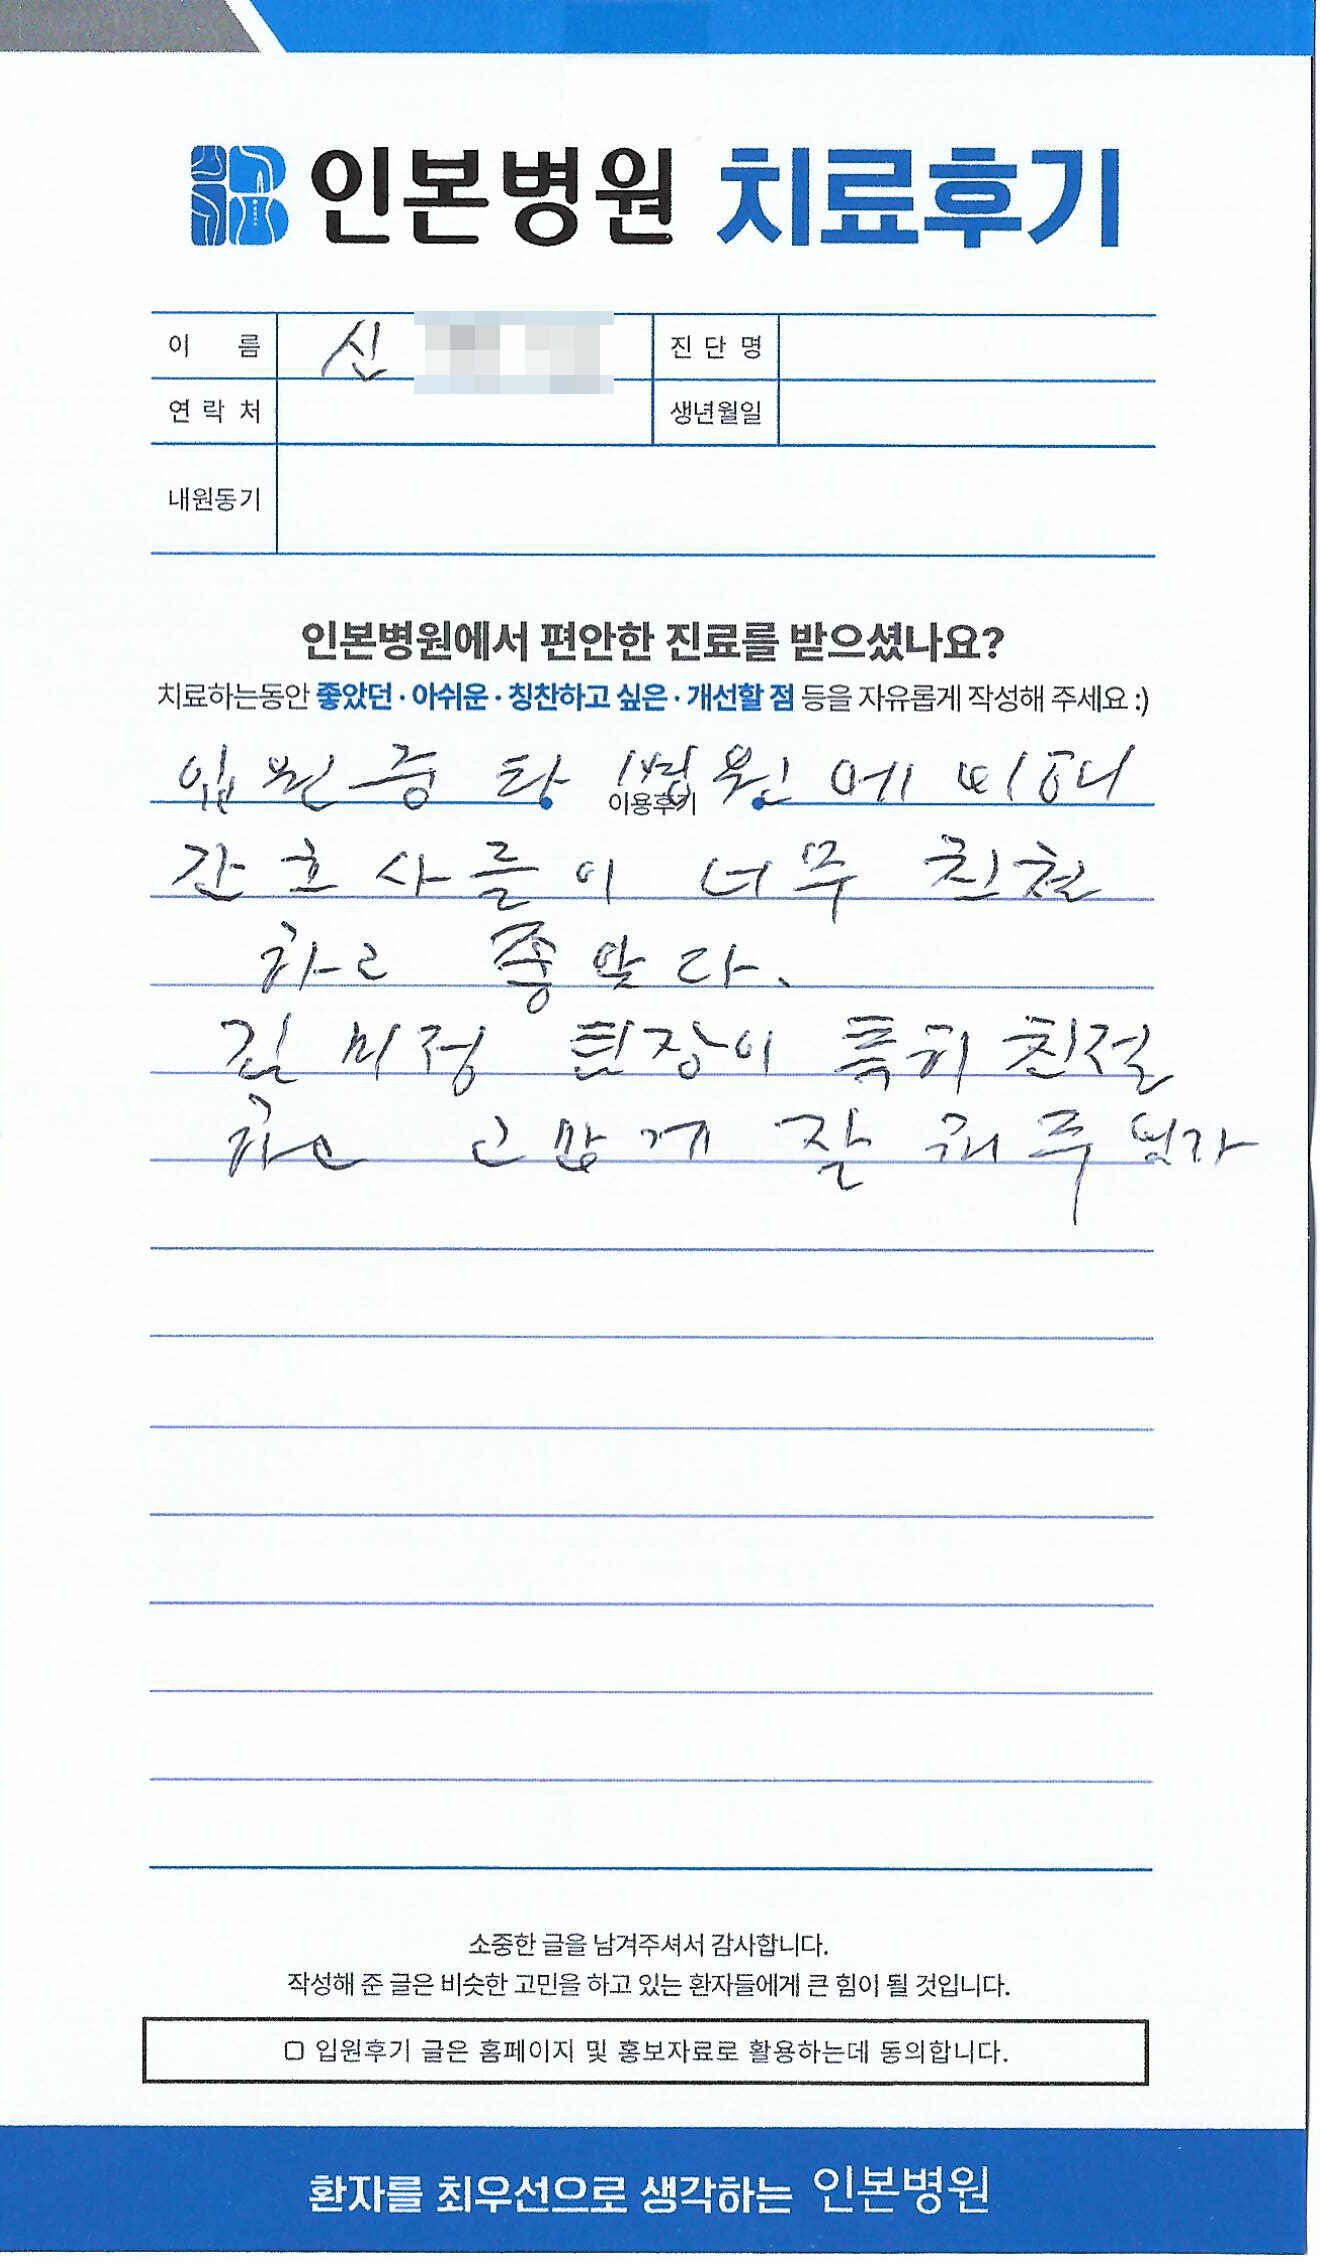 인본병원 치료후기
이 름 신 진 단 명
연 락 처 생년월일
내원동기
인본병원에서 편안한 진료를 받으셨나요?
치료하는동안 좋았던 · 아쉬운 · 칭찬하고 싶은 · 개선할 점 등을 자유롭게 작성해 주세요 :)
이용후기
입원중 타 병원에 비해
간호사들이 너무 친철
하고 좋았다.
김미정 팀장이 특히 친절
하고 고맙게 잘 해주
소중한 글을 남겨주셔서 감사합니다.
작성해 준 글은 비슷한 고민을 하고 있는 환자들에게 큰 힘이 될 것입니다.
□ 입원후기 글은 홈페이지 및 홍보자료로 활용하는데 동의합니다.
환자를 최우선으로 생각하는 인본병원